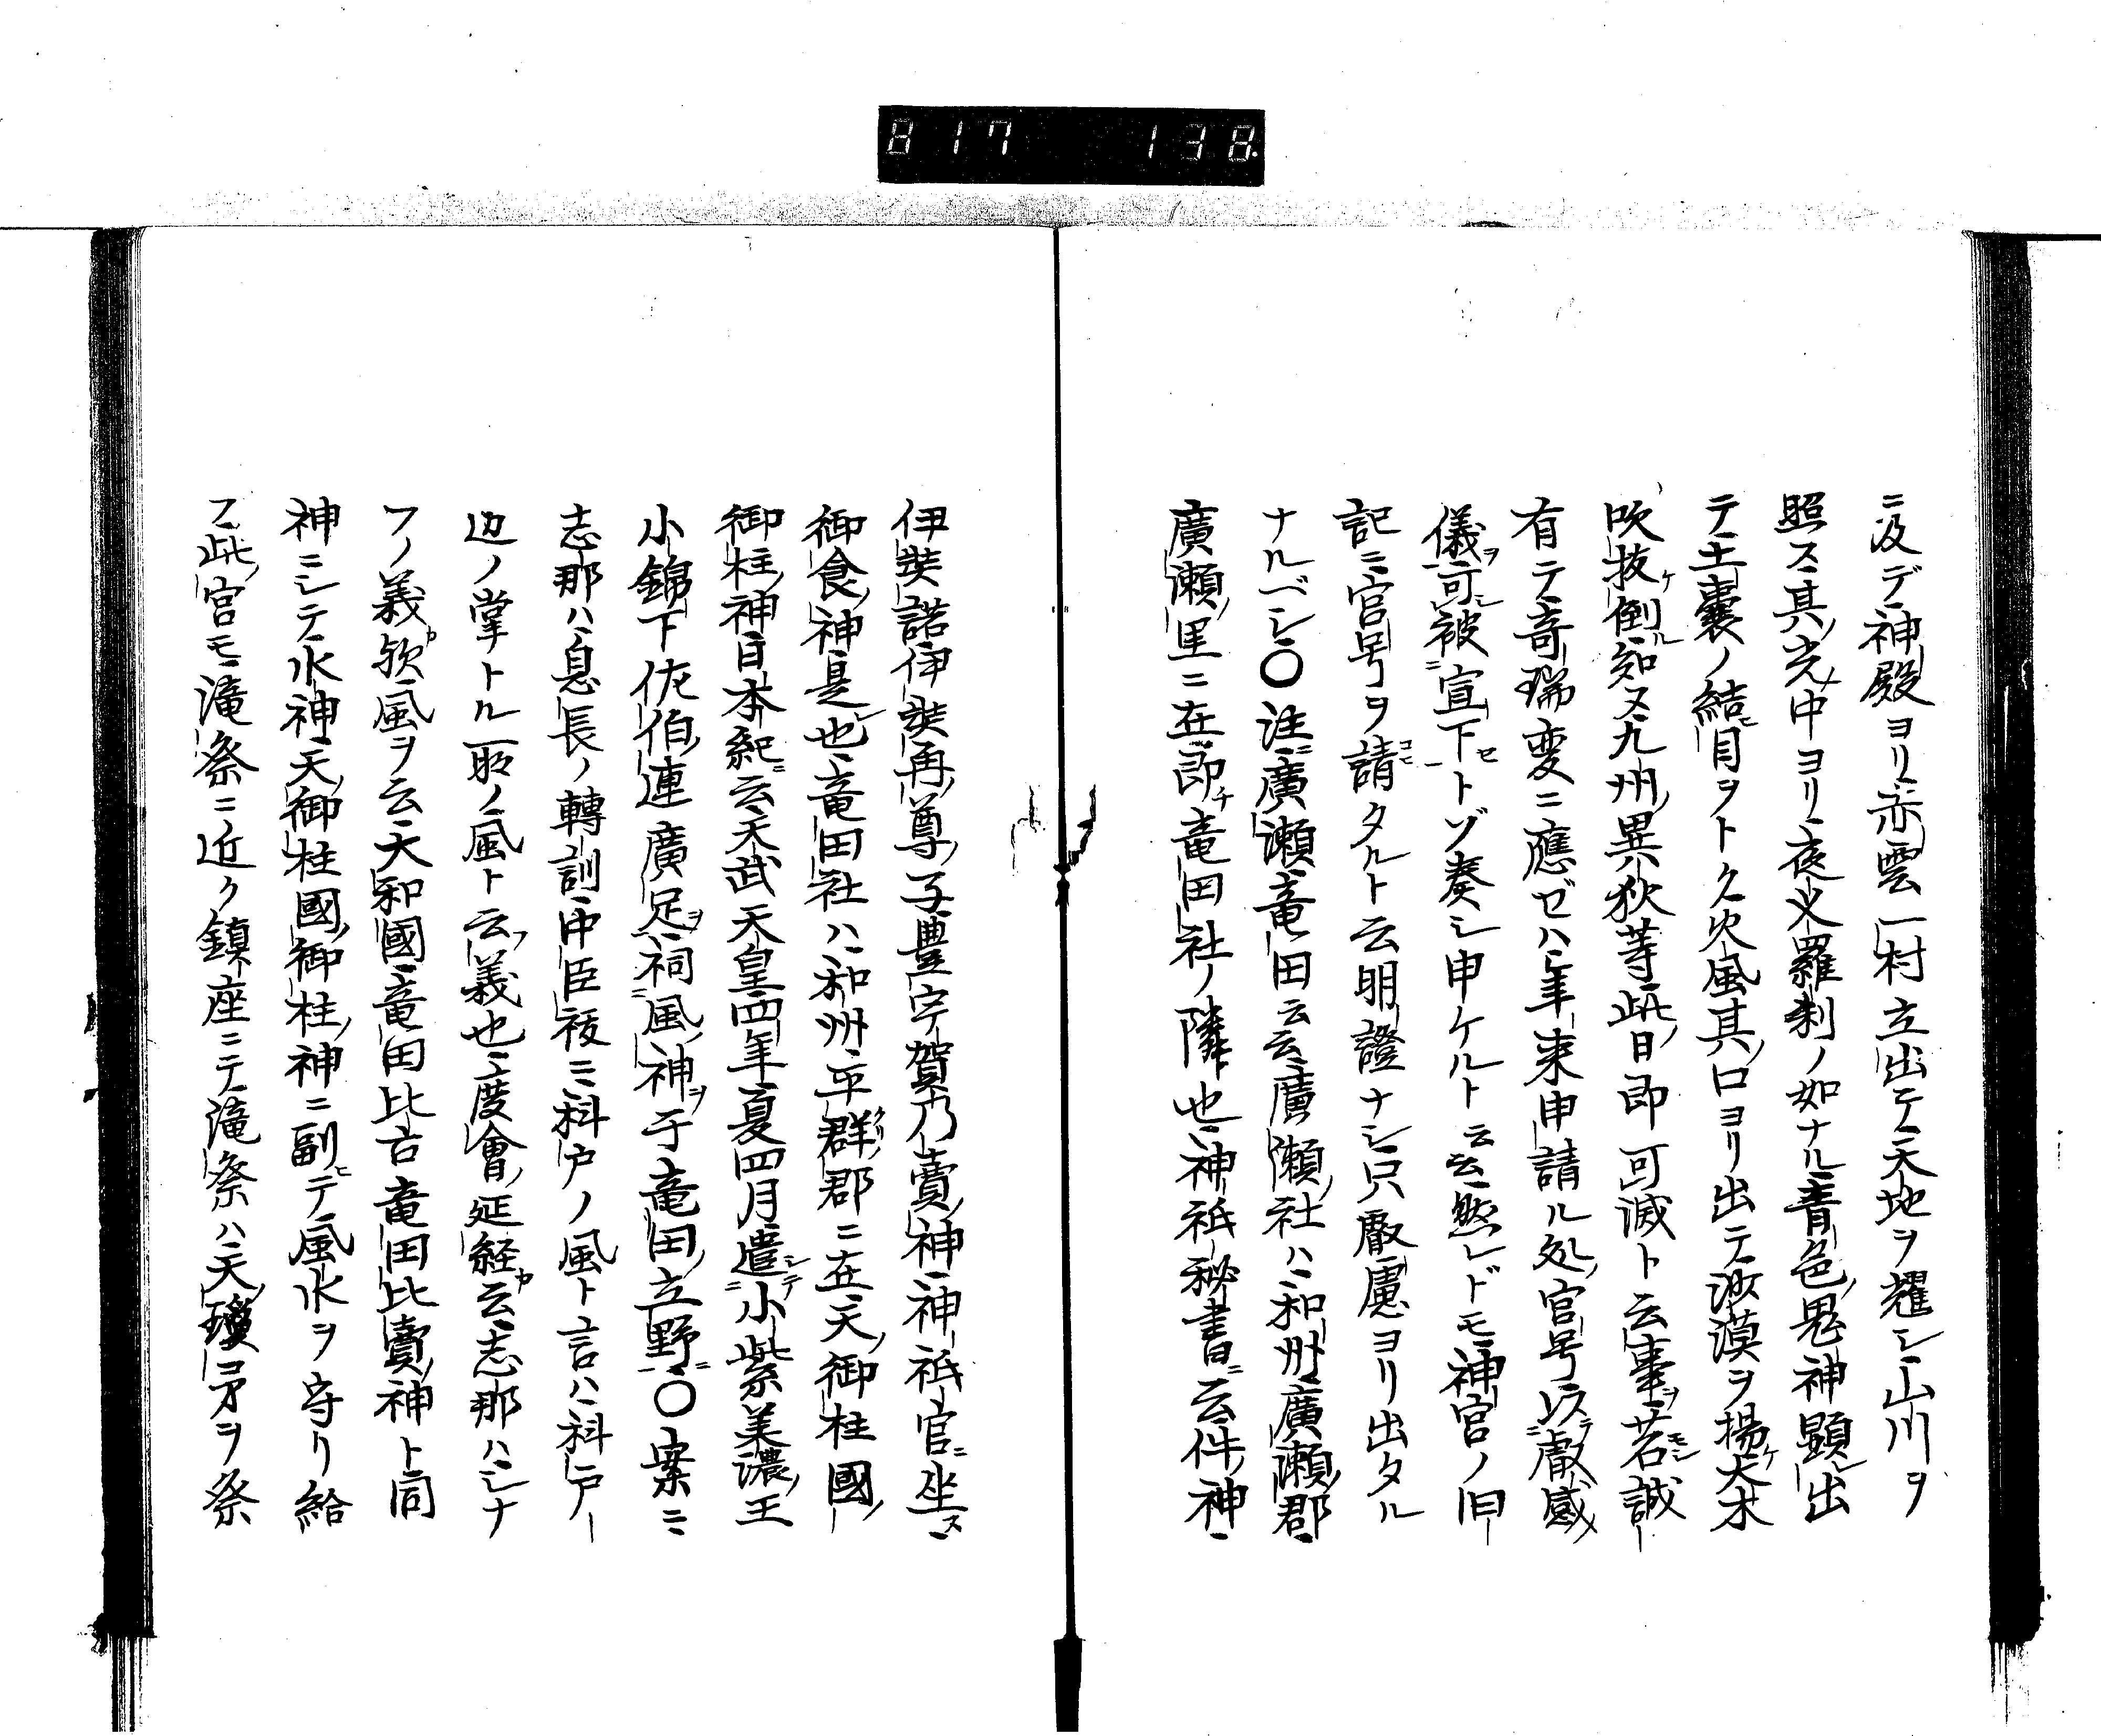 817 138
ニ及デ神殿ヨリ赤雲一村立出テ天地ヲ耀シ山川ヲ
照ス其光中ヨリ夜叉羅刹ノ如ナル青色鬼神顕出
テ土嚢ノ結目ヲトク火風其口ヨリ出テ沙漠ヲ揚大木
吹抜倒知又九州異狄等此日即可滅ト云事若誠
有テ奇瑞変ニ應ゼハ年来申請ル処官号以叡感
儀可被宣下トゾ奏シ申ケルト云云然レドモ神宮ノ旧
記ニ官号ヲ請タルト云明證ナシ只叡慮ヨリ出タル
ナルベシ〇注廣瀬竜田云云廣瀬社ハ和州廣瀬郡
廣瀬里ニ在即竜田社ノ隣也神祇秘書云件神
伊弉諾伊弉冉尊子豊宇賀乃賣神神祇官坐
御食神是也竜田社ハ和州平群郡ニ在天御柱國
御柱神日本紀云天武天皇四年夏四月遣小紫美濃王
小錦下佐伯連廣足祠風神于竜田立野〇案ニ
志那ハ息長ノ轉訓中臣祓ニ科戸ノ風ト言ハ科戸
辺ノ掌トル所ノ風ト云義也度會延経云志那ハシナ
フノ義欤風ヲ云大和國竜田比古竜田比賣神ト同
神ニシテ水神天御柱國御柱神ニ副テ風水ヲ守リ給
フ此宮モ滝祭ニ近ク鎮座ニテ滝祭ハ天瓊矛ヲ祭